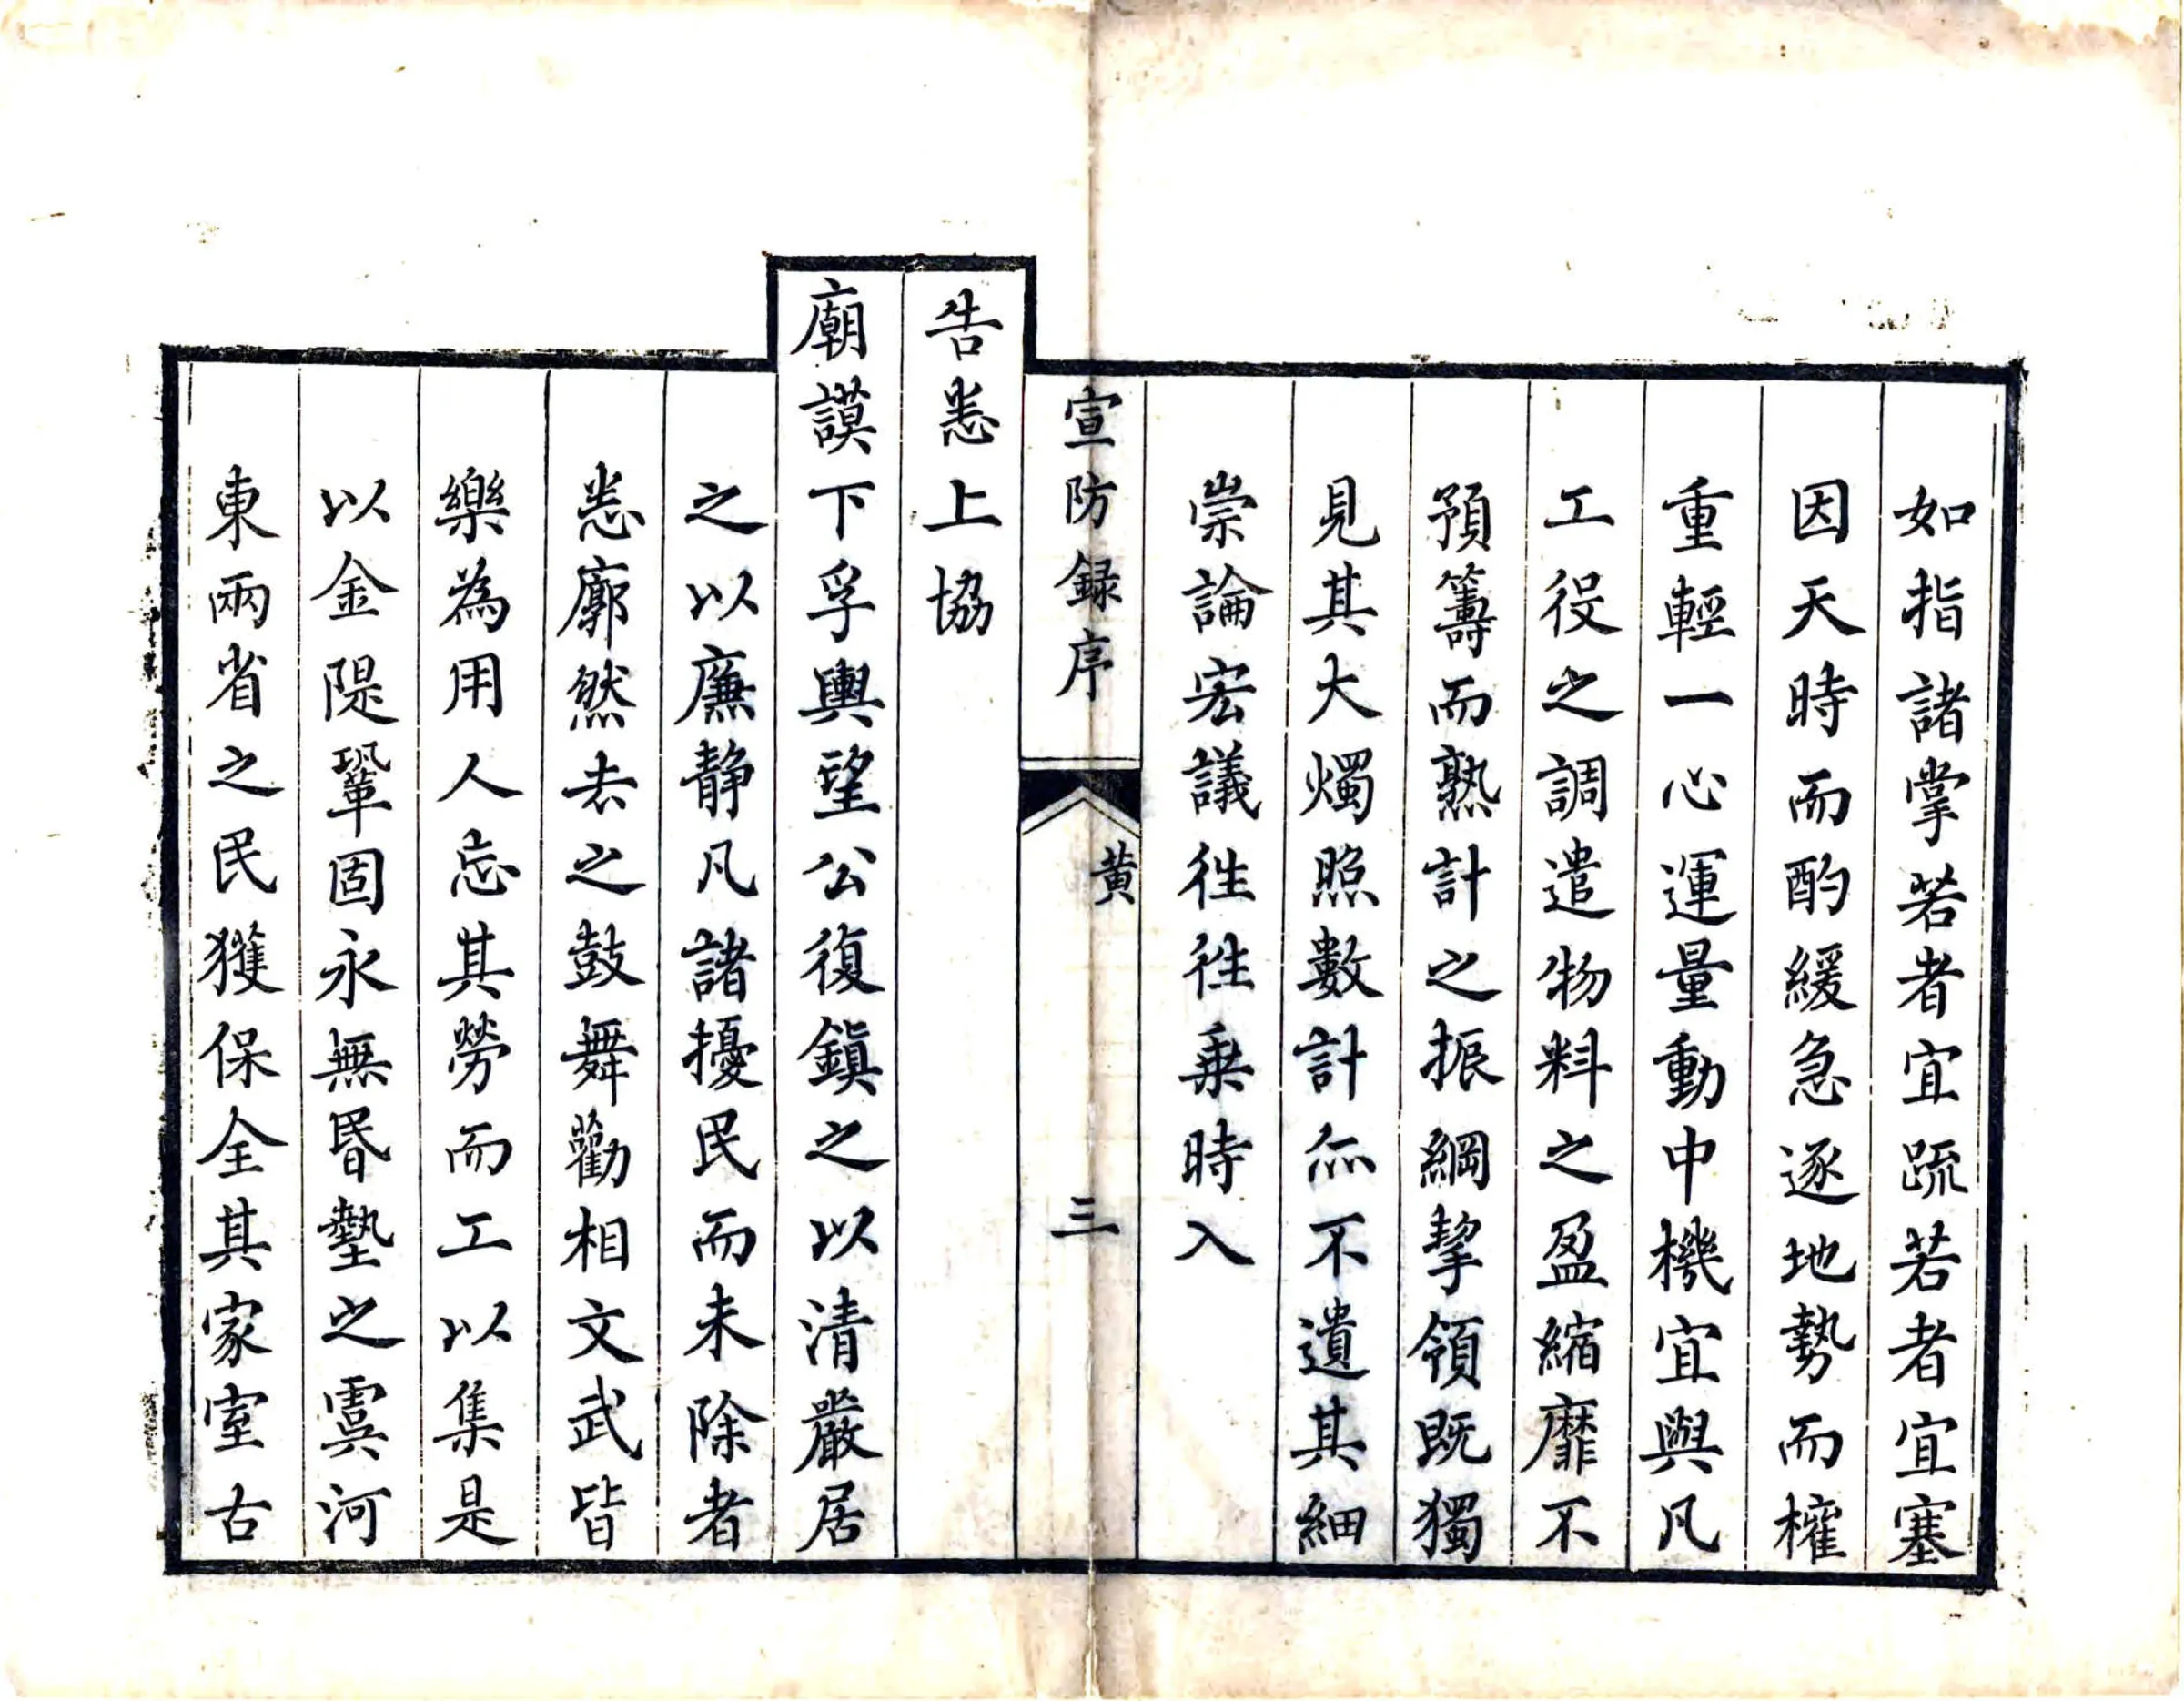 如指諸掌若者宜疏若者宜塞
因天時而酌緩急逐地勢而權
重輕一心運量動中機宜與凡
工役之調遣物料之盈縮靡不
預籌而熟計之振綱挈領既獨
見其大燭照數計尒不遺其細
崇論宏議徃徃乗時入
宣防録序
黄
三
告悉上協
廟謨下孚輿望公復鎮之以清嚴居
之以廉静凡諸擾民而未除者
悉廓然去之鼓舞勸相文武皆
樂為用人忘其勞而工以集是
以金隄鞏固永無昬墊之虞河
東兩省之民獲保全其家室古